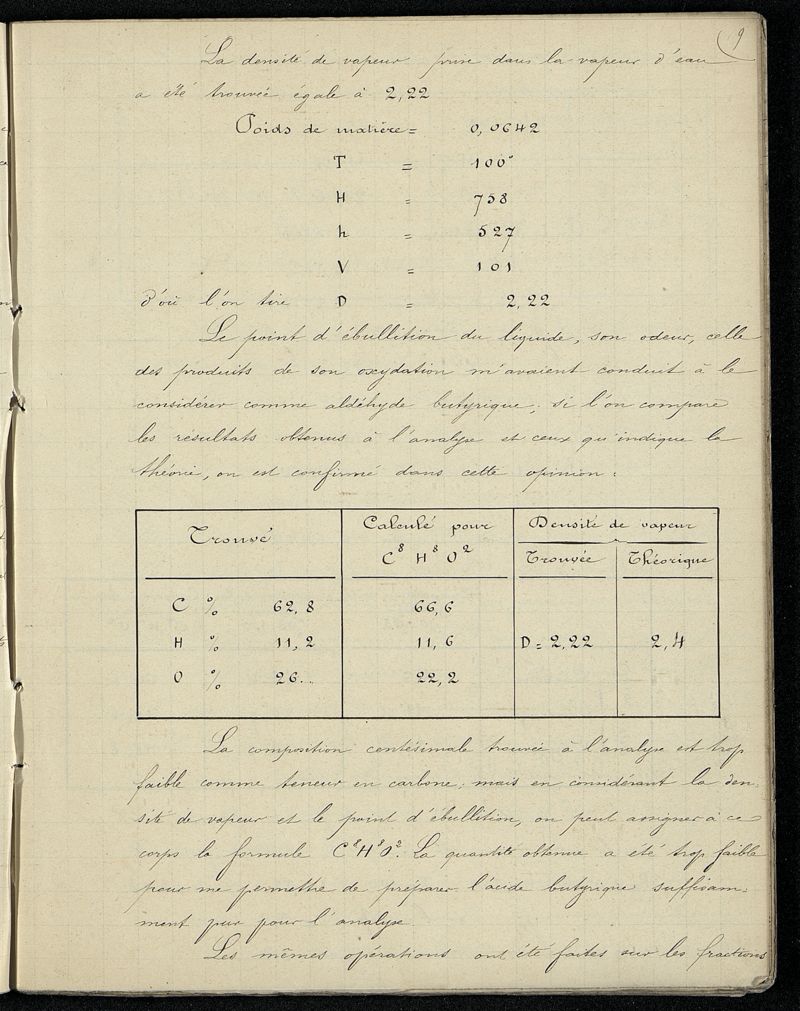 9
La densité de vapeur prise dans la vapeur d'eau
a été trouvée égale à 2,22
Poids de matière = 0,0642
T = 100°
H = 758
h = 527
V = 101
d'où l'on tire D = 2,22
Le point d'ébullition du liquide, son odeur, celle
des produits de son oxydation m'avaient conduit à le
considérer comme aldéhyde butyrique; si l'on compare
les résultats obtenus à l'analyse et ceux qu'indique la
théorie, on est confirmé dans cette opinion:
Trouvé Calculé pour Densité de vapeur
C⁸ H⁸ O² Trouvée Théorique
C % 62,8 66,6
H % 11,2 11,6 D = 2,22 2,4
O % 26.. 22,2
La composition centésimale trouvée à l'analyse est trop
faible comme teneur en carbone; mais en considérant la den-
sité de vapeur et le point d'ébullition, on peut assigner à ce
corps la formule C⁸H⁸O². La quantité obtenue a été trop faible
pour me permettre de préparer l'acide butyrique suffisam-
ment pur pour l'analyse.
Les mêmes opérations ont été faites sur les fractions